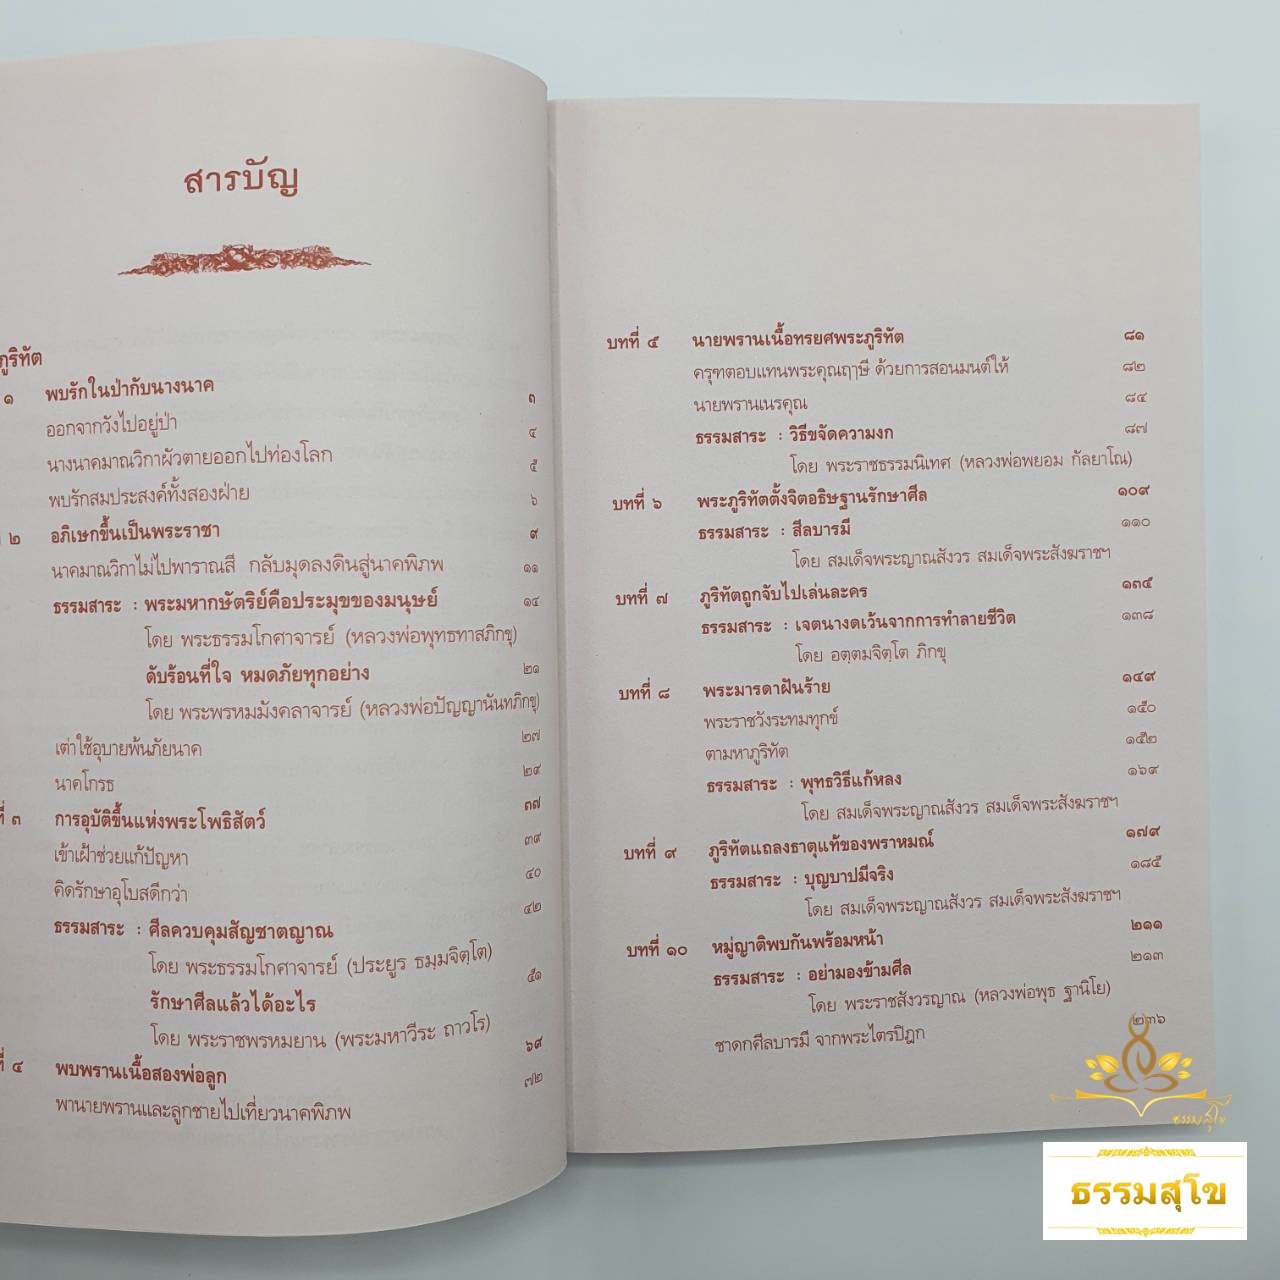 สารบัญ
ภูริทัต
๑ พบรักในป่ากับนางนาค ๓
ออกจากวังไปอยู่ป่า ๔
นางนาคมาณวิกาผัวตายออกไปท่องโลก ๕
พบรักสมประสงค์ทั้งสองฝ่าย ๖
๒ อภิเษกขึ้นเป็นพระราชา ๙
นาคมาณวิกาไม่ไปพาราณสี กลับมุดลงดินสู่นาคพิภพ ๑๑
ธรรมสาระ : พระมหากษัตริย์คือประมุขของมนุษย์ ๑๔
โดย พระธรรมโกศาจารย์ (หลวงพ่อพุทธทาสภิกขุ)
ดับร้อนที่ใจ หมดภัยทุกอย่าง ๒๑
โดย พระพรหมมังคลาจารย์ (หลวงพ่อปัญญานันทภิกขุ)
เต่าใช้อุบายพ้นภัยนาค ๒๗
นาคโกรธ ๒๙
ที่ ๓ การอุบัติขึ้นแห่งพระโพธิสัตว์ ๓๗
เข้าเฝ้าช่วยแก้ปัญหา ๓๙
คิดรักษาอุโบสถดีกว่า ๔๐
ธรรมสาระ : ศีลควบคุมสัญชาตญาณ ๔๒
โดย พระธรรมโกศาจารย์ (ประยูร ธมฺมจิตฺโต)
รักษาศีลแล้วได้อะไร ๕๑
โดย พระราชพรหมยาน (พระมหาวีระ ถาวโร)
ที่ ๔ พบพรานเนื้อสองพ่อลูก ๖๙
พานายพรานและลูกชายไปเที่ยวนาคพิภพ ๗๒
บทที่ ๕ นายพรานเนื้อทรยศพระภูริทัต ๘๑
ครุฑตอบแทนพระคุณฤๅษี ด้วยการสอนมนต์ให้ ๘๒
นายพรานเนรคุณ ๘๔
ธรรมสาระ : วิธีขจัดความงก ๘๗
โดย พระราชธรรมนิเทศ (หลวงพ่อพยอม กัลยาโณ)
บทที่ ๖ พระภูริทัตตั้งจิตอธิษฐานรักษาศีล ๑๐๙
ธรรมสาระ : สีลบารมี ๑๑๐
โดย สมเด็จพระญาณสังวร สมเด็จพระสังฆราชฯ
บทที่ ๗ ภูริทัตถูกจับไปเล่นละคร ๑๓๕
ธรรมสาระ : เจตนางดเว้นจากการทำลายชีวิต ๑๓๘
โดย อตฺตมจิตฺโต ภิกขุ
บทที่ ๘ พระมารดาฝันร้าย ๑๔๙
พระราชวังระทมทุกข์ ๑๕๐
ตามหาภูริทัต ๑๕๒
ธรรมสาระ : พุทธวิธีแก้หลง ๑๖๙
โดย สมเด็จพระญาณสังวร สมเด็จพระสังฆราชฯ
บทที่ ๙ ภูริทัตแถลงธาตุแท้ของพราหมณ์ ๑๗๙
ธรรมสาระ : บุญบาปมีจริง ๑๘๕
โดย สมเด็จพระญาณสังวร สมเด็จพระสังฆราชฯ
บทที่ ๑๐ หมู่ญาติพบกันพร้อมหน้า ๒๑๑
ธรรมสาระ : อย่ามองข้ามศีล ๒๑๓
โดย พระราชสังวรญาณ (หลวงพ่อพุธ ฐานิโย)
ชาดกศีลบารมี จากพระไตรปิฎก ๒๓๖
ธรรมสุโข
ธรรมสุโข